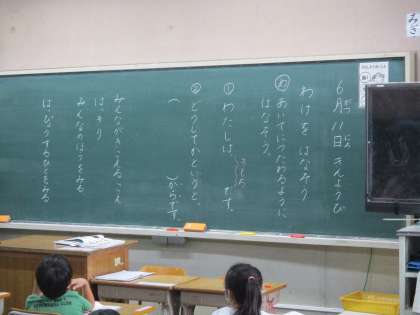 みぎ
6月11日 きんようび
わけを はなそう
め あいてにつたわるように、
はなそう。
① わたしは、 です。
② どうしてかというと、
( )からです。
みんながきこえるこえ
はっきり
みんなのほうをみる
はっぴょうするひとをみる